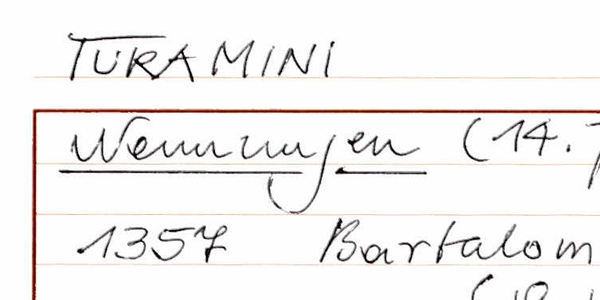 TURAMINI
Nennungen (14.
1357 Bartalom